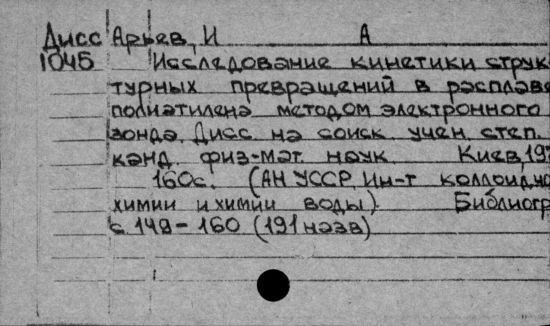 Дисс Арьев, И А
1045 Исследование кинетики струк
турных превращений в расплаве
полиэтилена методом электронного
зонда. Дисс. на соиск учен степ.
канд. физ-мат. наук. Киев, 197
160с. (АН УССР. Ин-т коллоидно
химии и химии воды). Библиогр
с. 149-160 (191 назв)